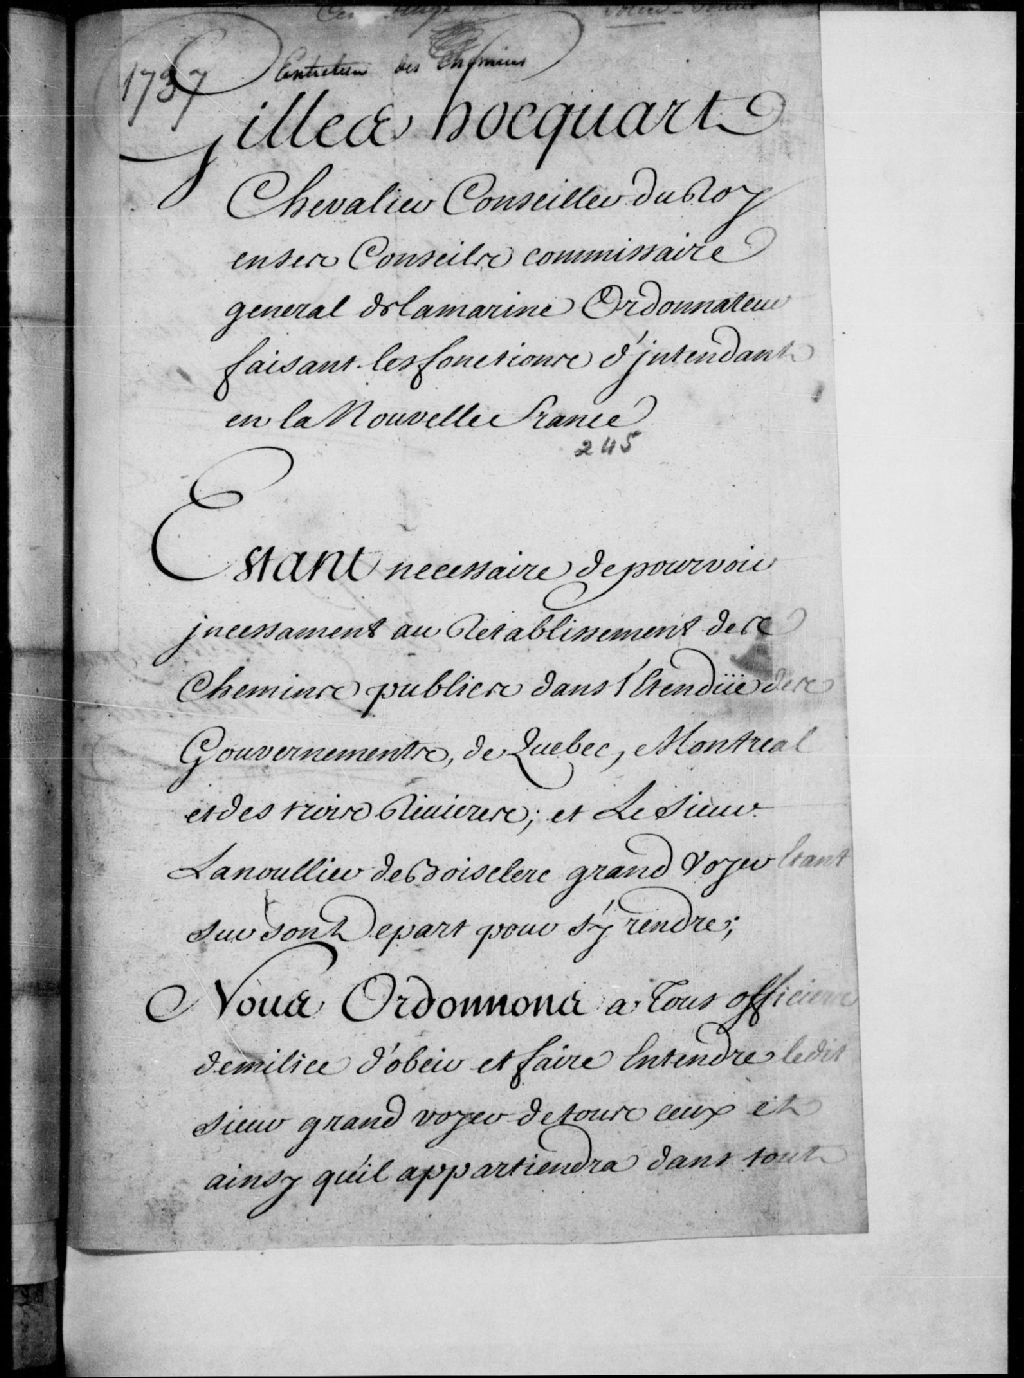 1737
Entretien des Chemins
Gilles hocquart
Chevalier Conseiller du Roy
en ses Conseils commissaire
general de la marine Ordonnateur
faisant les fonctions d'jntendant
en la Nouvelle france
245
Estant necessaire de pourvoir
jncessament au Retablissement des
Chemins publics dans l'Etendüe des
Gouvernements, de Quebec, Montreal
et des trois Rivieres; et Le Sieur
Lanoullier de Boisclerc grand Voyer Etant
sur son Depart pour s'y rendre;
Nous Ordonnons a Tous officiers
de milice d'obeir et faire Entendre ledit
sieur grand voyer de tous ceux et
ainsy qu'il appartiendra dans tout